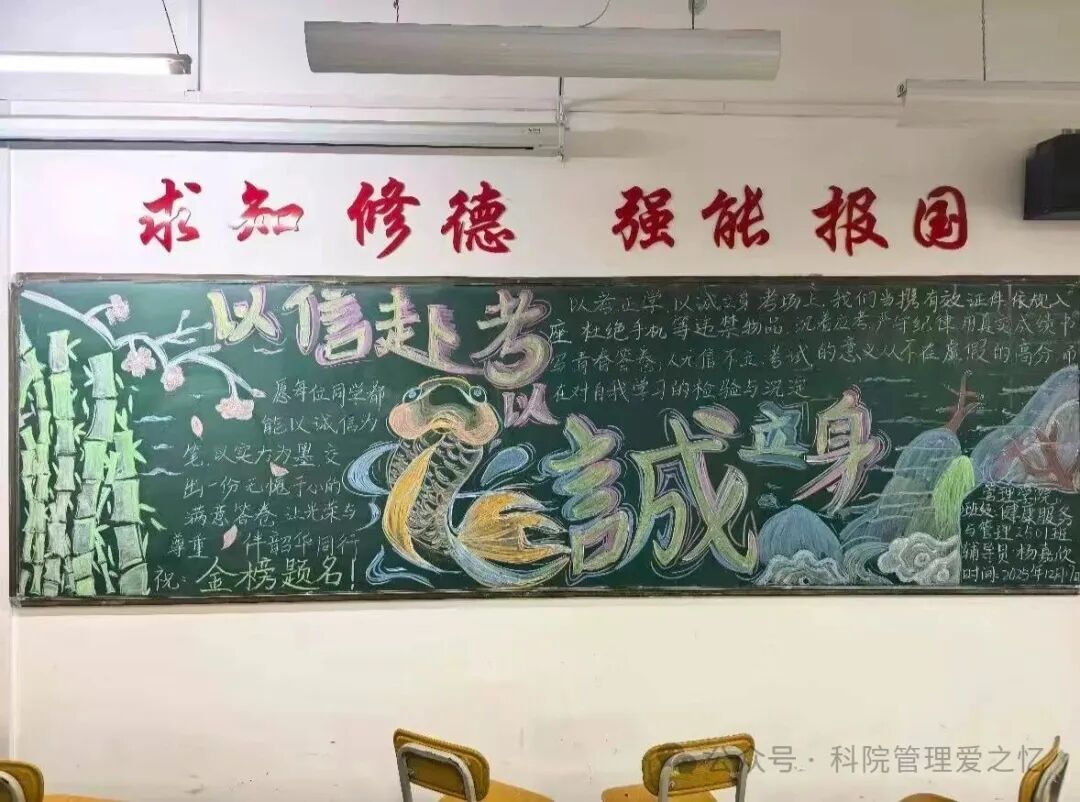 求知修德 强能报国
以信赴考
以誠立身
以考正学 以诚立身 考场上,我们当携有效证件依规入
座 杜绝手机等违禁物品,沉着应考 严守纪律 用真实成绩书
写青春答卷,人无信不立 考试的意义从不在虚假的高分 而
在对自我学习的检验与沉淀
愿每位同学都
能以诚信为
笔,以实力为墨 交
出一份无愧于心的
满意答卷 让光荣与
尊重 伴韶华同行
祝:金榜题名!
管理学院
班级 健康服务
与管理2501班
辅导员 杨嘉欣
时间:2025年12月
公众号·科院管理爱之忆